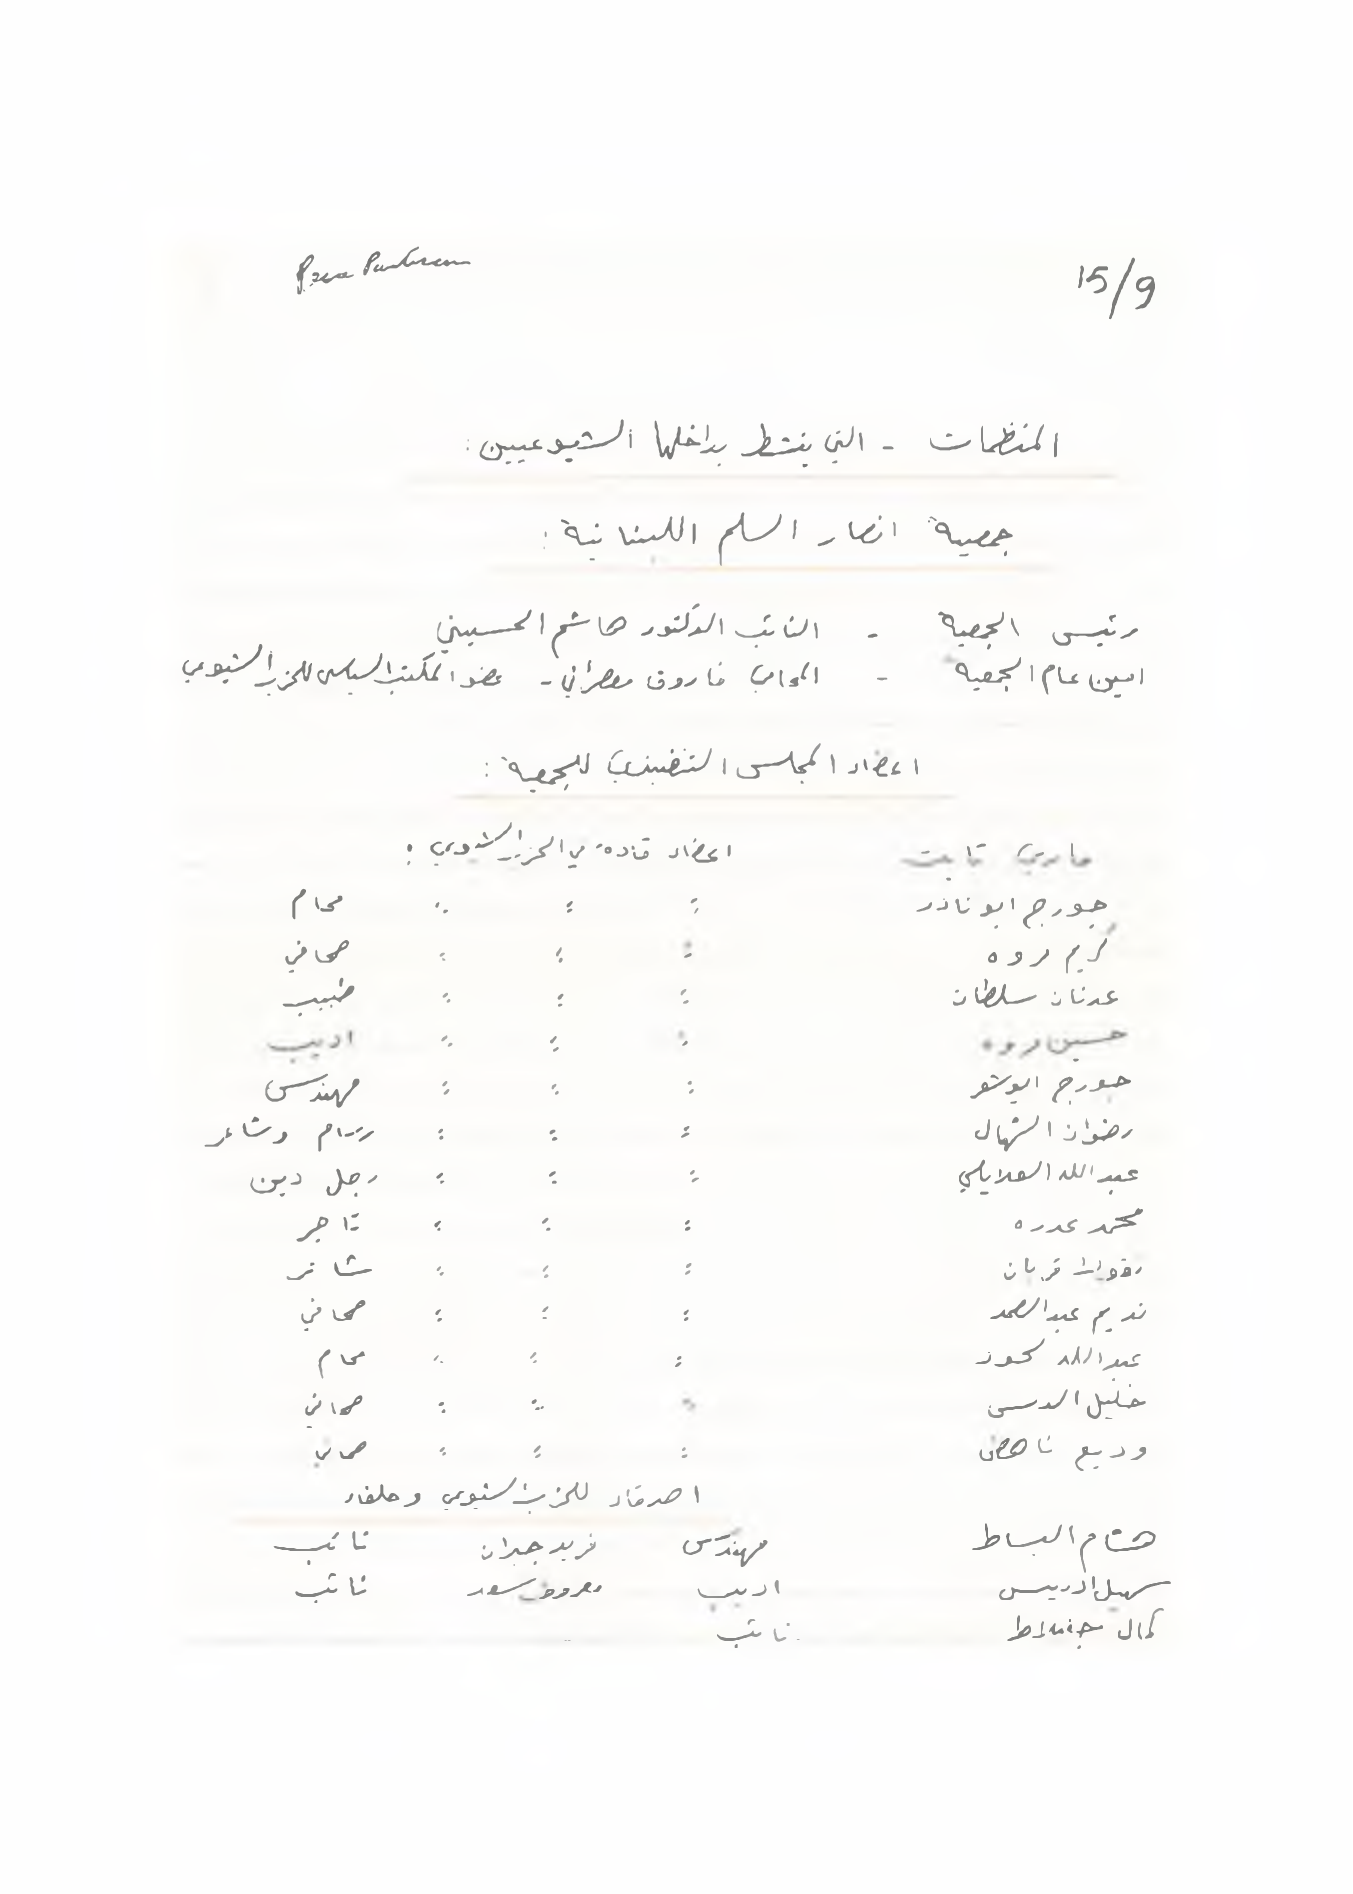 15/9
Peace Partisans
المنظمات - التي ينشط بداخلها الشيوعيين :
جمعية انصار السلم اللبنانية :
رئيس الجمعية - النائب الدكتور هاشم الحسيني
امين عام الجمعية - المحامي فاروق معصراني - عضو المكتب السياسي للحزب الشيوعي
اعضاء المجلس التنفيذي للجمعية :
ماري تابت اعضاء قاده في الحزب الشيوعي :
جورج ابو نادر " " " محام
كريم مروه " " " صحافي
عدنان سلطان " " " طبيب
حسين مروه " " " اديب
جورج ابو شعر " " " مهندس
رضوان الشهال " " " رسام وشاعر
عبدالله العلايلي " " " رجل دين
محمد " " " تاجر
قربان " " " شاعر
نديم عبدالصمد " " " صحافي
عبدالله " " " محام
خليل الدبس " " " صحافي
وديع ناهض " " " صحافي
اصدقاء للحزب الشيوعي وحلفاء
هشام البساط مهندس فريد جبران نائب
سهيل ادريس اديب معروف سعد نائب
كمال جنبلاط نائب